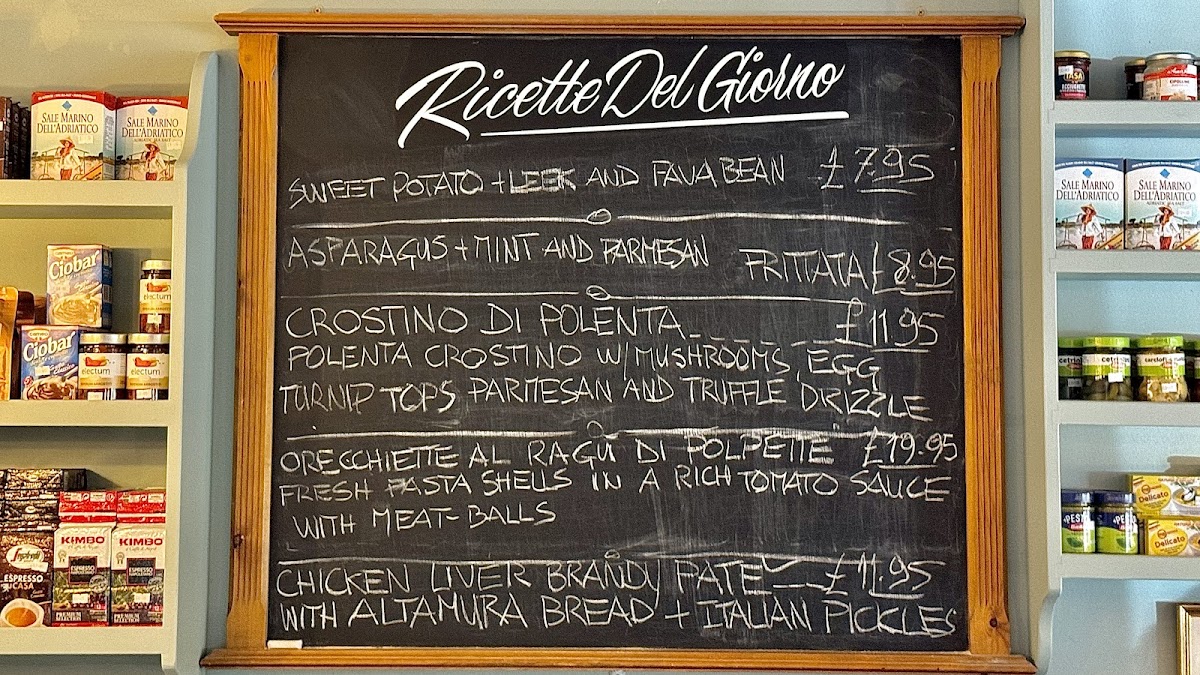 Ricette Del Giorno
SWEET POTATO + LEEK AND FAVA BEAN £7.95
ASPARAGUS + MINT AND PARMESAN FRITTATA £8.95
CROSTINO DI POLENTA £11.95
POLENTA CROSTINO W/ MUSHROOMS, EGG
TURNIP TOPS PARMESAN AND TRUFFLE DRIZZLE
ORECCHIETTE AL RAGÚ DI POLPETTE £19.95
FRESH PASTA SHELLS IN A RICH TOMATO SAUCE
WITH MEAT-BALLS
CHICKEN LIVER BRANDY PATE £11.95
WITH ALTAMURA BREAD + ITALIAN PICKLES
SALE MARINO
DELL'ADRIATICO
SALE MARINO
DELL'ADRIATICO
Ciobar
electum
Ciobar
electum
electum
Segafredo
ESPRESSO
CASA
KIMBO
ESPRESSO
KIMBO
ESPRESSO
CIPOLLINE
SALE MARINO
DELL'ADRIATICO
ADRIATIC SEA SALT
SALE MARINO
DELL'ADRIATICO
ADRIATIC SEA SALT
cetrioli
carciofi
PESTO
Delicato
Delicato